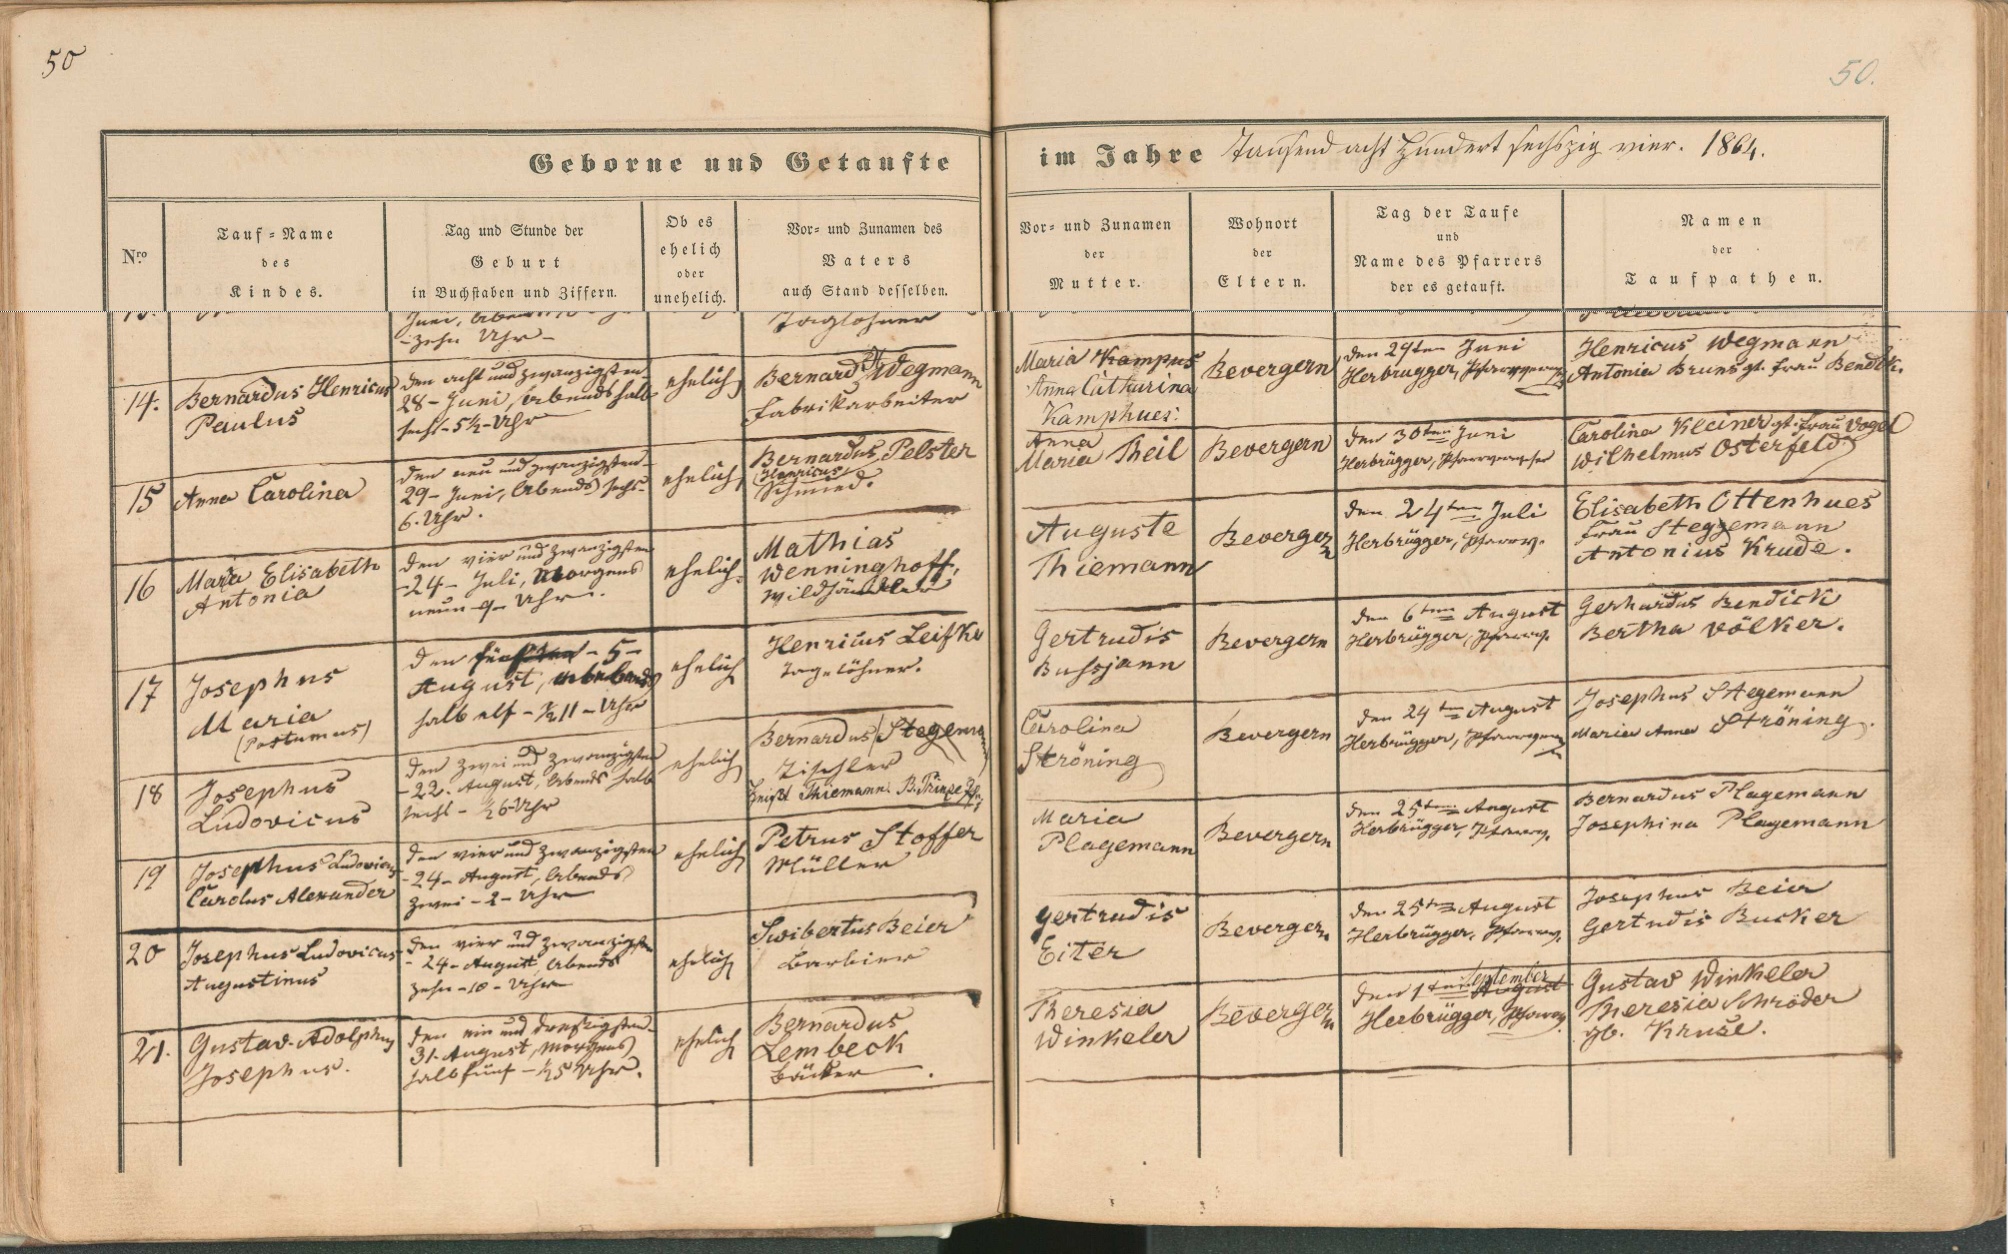 50
50.
Geborne und Getaufte
im Jahre Tausend acht Hundert sechszig vier. 1864.
Nro
Tauf-Name
des
Kindes.
Tag und Stunde der
Geburt
in Buchstaben und Ziffern.
Ob es
ehelich
oder
unehelich.
Vor- und Zunamen des
Vaters
auch Stand desselben.
Vor- und Zunamen
der
Mutter.
Wohnort
der
Eltern.
Tag der Taufe
und
Name des Pfarrers
der es getauft.
Namen
der
Taufpathen.
Juni,
-zehn Uhr-
Taglöhner
14.
Bernardus Henricus
Paulus
den acht und zwanzigsten
28- Juni, Abends halb
sechs-5½-Uhr
ehelich
Bernard Wegmann
Fabrikarbeiter
Maria Kampus
Anna Catharina
Kamphues.
Bevergern
den 29ten Juni
Herbrügger, Pfarrverweser
Henricus Wegmann
Antonia Bruns gt. Frau Bendik.
15
Anna Carolina
den neu und zwanzigsten
29- Juni, Abends sechs-
6. Uhr.
ehelich
Bernardus Pelster
(Henricus)
Schmied.
Anna
Maria Theil
Bevergern
den 30ten Juni
Herbrügger, Pfarrverweser
Carolina Kleiner gt. Frau Vogel
Wilhelmus Osterfeld
16
Maria Elisabeth
Antonia
den vier und zwanzigsten
-24- Juli, Morgens
neun-9-Uhr.
ehelich.
Mathias
Wenninghoff,
Wildhändler
Auguste
Thiemann
Bevergern
den 24ten Juli
Herbrügger, Pfarrv.
Elisabeth Ottenhues
Frau Steggemann
Antonius Krude.
17
Josephus
Maria
(Postumus)
den fünften -5-
August, Abends
halb elf-½11-Uhr
ehelich
Henricus Leifke
Tagelöhner.
Gertrudis
Bussjann
Bevergern
den 6ten August
Herbrügger, Pfarrv.
Gerhardus Bendick
Bertha Völker.
18
Josephus
Ludovicus
den zwei und zwanzigsten
-22. August, Abends halb
sechs-½6-Uhr
ehelich
Bernardus (Stegemann)
Tischler
heißt Thiemann.
Carolina
Ströning
Bevergern
den 24ten August
Herbrügger, Pfarrverw.
Josephus Stegemann
Maria Anna Ströning.
19
Josephus Ludovicus
Carolus Alexander
den vier und zwanzigsten
-24- August, Abends
zwei-2-Uhr
ehelich
Petrus Stoffer
Müller
Maria
Plagemann
Bevergern
den 25ten August
Herbrügger, Pfarrv.
Bernardus Plagemann
Josephina Plagemann
20
Josephus Ludovicus
Augustinus
den vier und zwanzigsten
-24-August, Abends
zehn-10-Uhr
ehelich
Swibertus Beier
Barbier
Gertrudis
Eiter
Bevergern
den 25ten August
Herbrügger, Pfarrv.
Josephus Beier
Gertrudis Bucker
21.
Gustav Adolphus
Josephus.
den ein und dreißigsten
31. August, Morgens
halb fünf-½5 Uhr.
ehelich
Bernardus
Lembeck
Bäcker.
Theresia
Winkeler
Bevergern
den 1ten August September
Herbrügger, Pfarrv.
Gustav Winkeler
Theresia Schröder
gb. Kruse.